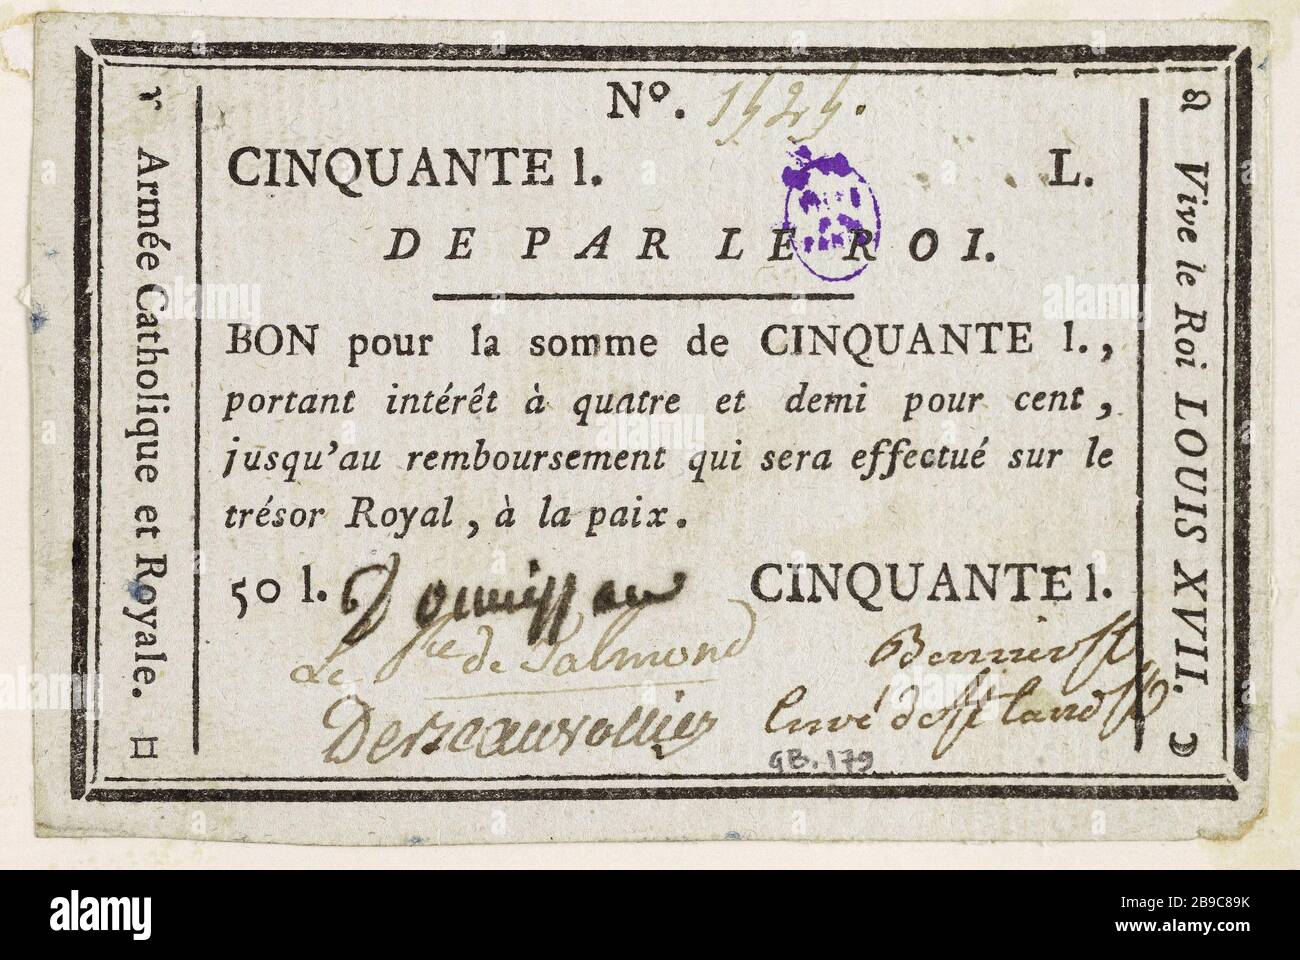 Nº. 1525.
CINQUANTE l. L.
DE PAR LE ROI.
BON pour la somme de CINQUANTE l.,
portant intérêt à quatre et demi pour cent,
jusqu'au remboursement qui sera effectué sur le
trésor Royal, à la paix.
50 l. Donnissan CINQUANTE l.
Le Pce de Talmond Bernier
Desessarts Curé de St Laud
GB.179
Armée Catholique et Royale.
Vive le Roi LOUIS XVII.
alamy
Image ID: 2B9C89K
www.alamy.com